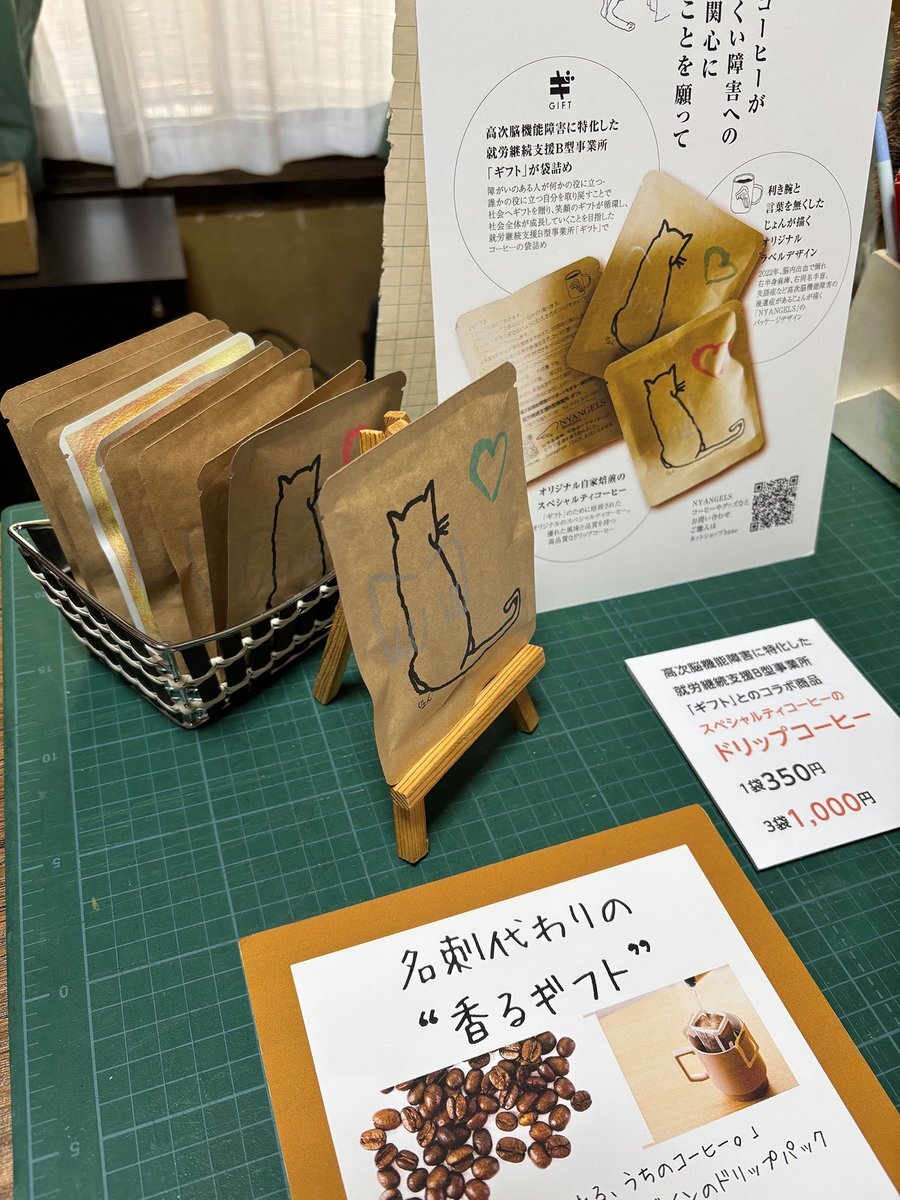 コーヒーが
くい障害への
関心に
ことを願って
ギ
GIFT
高次脳機能障害に特化した
就労継続支援B型事業所
「ギフト」が袋詰め
障がいのある人が何かの役に立つ・
誰かの役に立つ自分を取り戻すことで
社会へギフトを贈り、笑顔のギフトが循環し、
社会全体が成長していくことを目指した
就労継続支援B型事業所「ギフト」で
コーヒーの袋詰め
利き腕と
言葉を無くした
じょんが描く
オリジナル
ラベルデザイン
2022年、脳内出血で倒れ
右半身麻痺、右同名半盲、
失語症など高次脳機能障害の
後遺症があるじょんが描く
「NYANGELS」の
パッケージデザイン
NYANGELS
オリジナル自家焙煎の
スペシャルティコーヒー
「ギフト」のために焙煎された
オリジナルのスペシャルティコーヒー。
優れた風味と品質を持つ
高品質なドリップコーヒー
NYANGELS
コーヒーやグッズなど
お問い合わせ
ご購入は
ネットショップbase
高次脳機能障害に特化した
就労継続支援B型事業所
「ギフト」とのコラボ商品
スペシャルティコーヒーの
ドリップコーヒー
1袋350円
3袋1,000円
名刺代わりの
“香るギフト”
る、うちのコーヒー。」
インのドリップパック
15
10
5
0